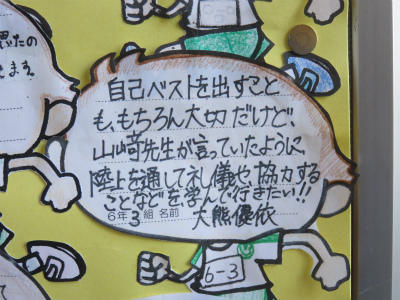 置いたの
ます。
自己ベストを出すこと
も、もちろん大切だけど
山﨑先生が言っていたように
陸上を通して礼儀や協力する
ことなどを学んで行きたい!!
6年3組 名前 大熊優依
6-3